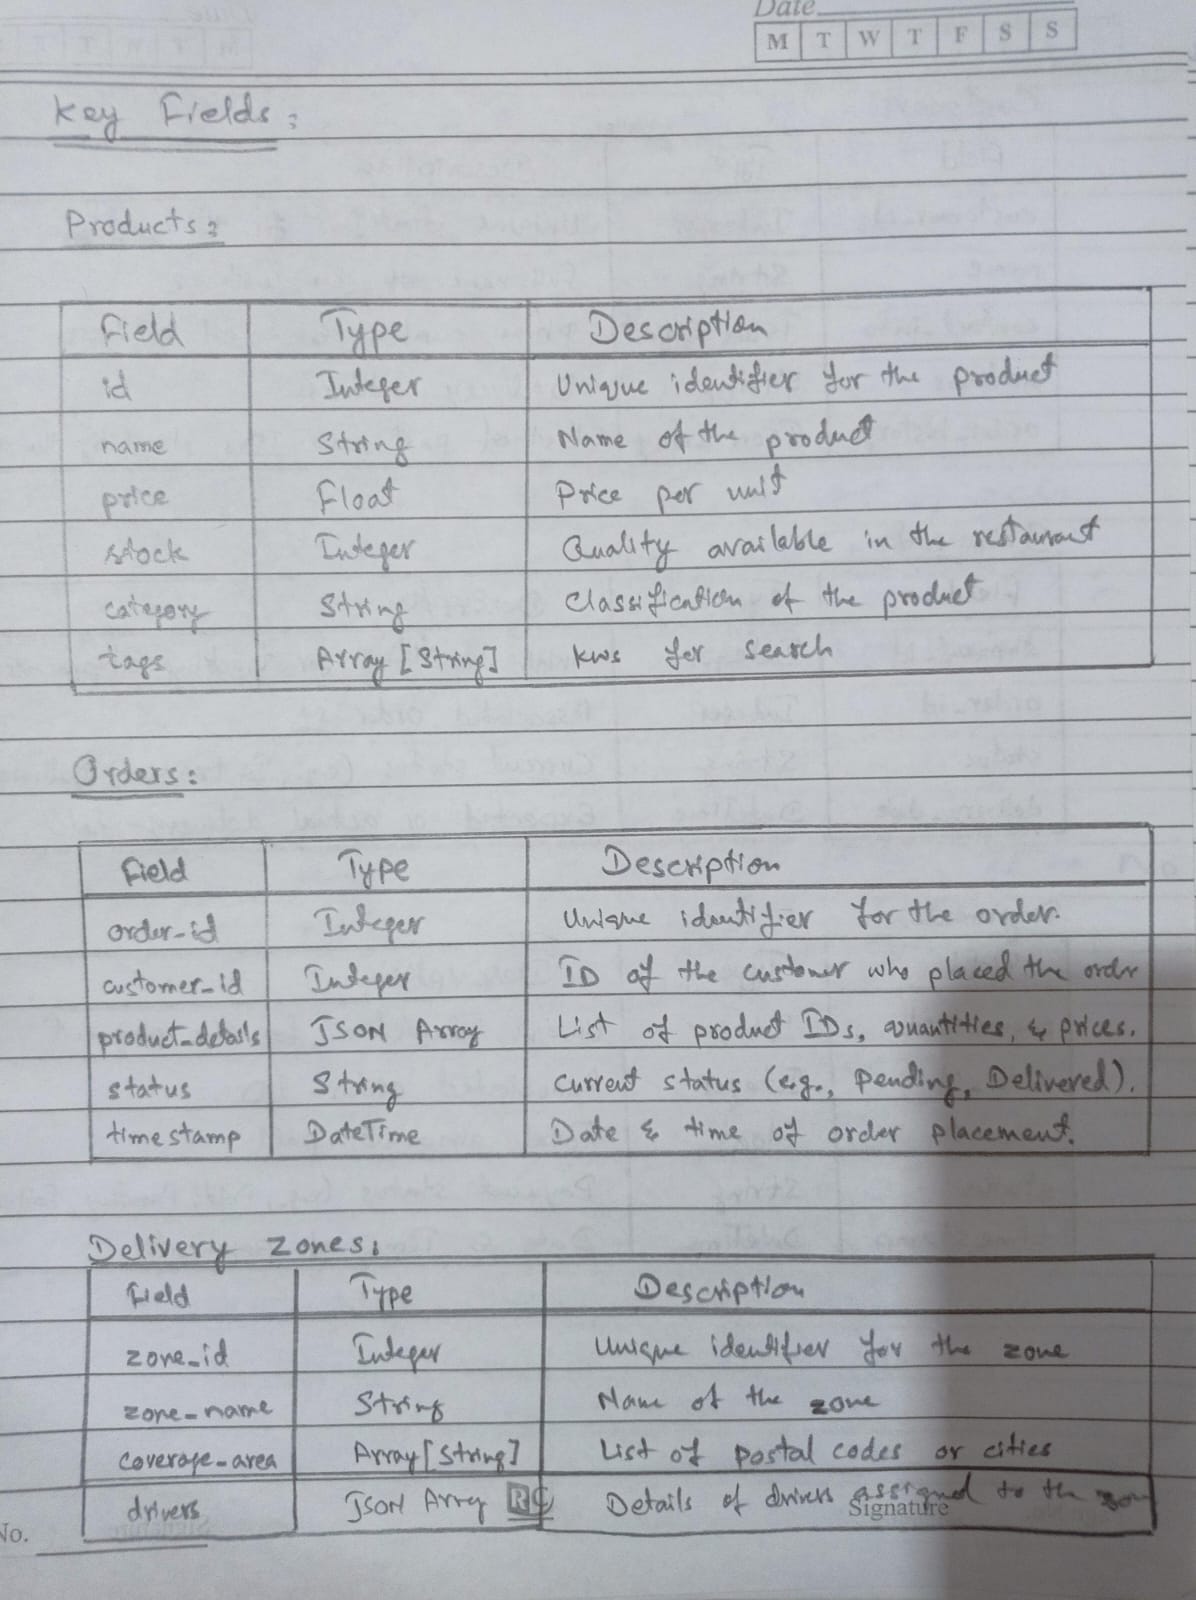 Date
M T W T F S S
Key Fields:
Products:
Field Type Description
id Integer Unique identifier for the product
name String Name of the product
price Float Price per unit
stock Integer Quality available in the restaurant
category String Classification of the product
tags Array [String] kws for search
Orders:
Field Type Description
order_id Integer Unique identifier for the order.
customer_id Integer ID of the customer who placed the order
product_details JSON Array List of product IDs, quantities, & prices.
status String Current status (e.g., Pending, Delivered).
timestamp DateTime Date & time of order placement.
Delivery Zones:
Field Type Description
zone_id Integer Unique identifier for the zone
zone_name String Name of the zone
coverage_area Array [String] List of postal codes or cities
drivers JSON Array Details of drivers assigned to the zone
No. Signature